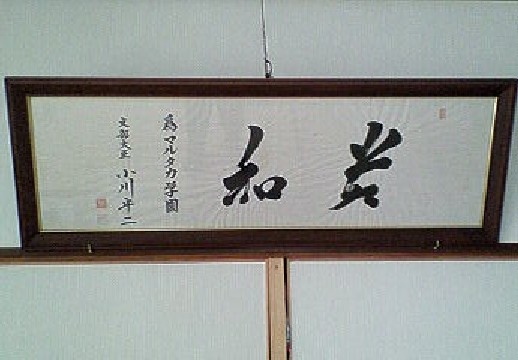 和
為マルタカ学園
文部大臣 小川平二